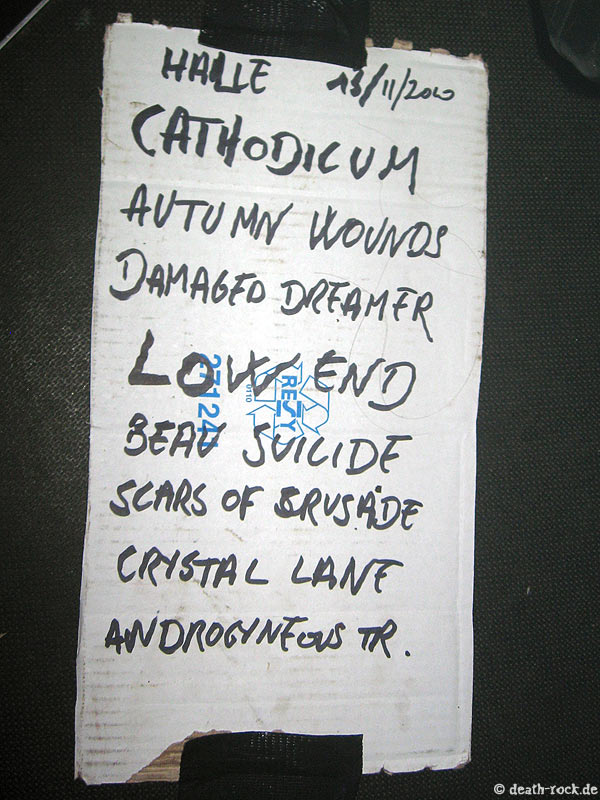 HALLE 13/11/2010
CATHODICUM
AUTUMN WOUNDS
DAMAGED DREAMER
LOW END
271241
RESY
0110
BEAU SUICIDE
SCARS OF BRUSADE
CRYSTAL LANE
ANDROGYNEOUS TR.
© death-rock.de